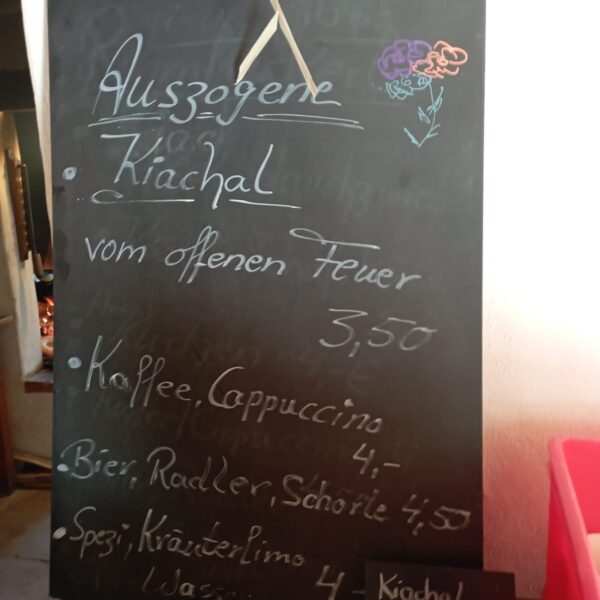 Auszogene
• Kiachal
vom offenen Feuer
3,50
• Kaffee, Cappuccino
4,-
• Bier, Radler, Schorle 4,50
• Spezi, Kräuterlimo
4,-
Kiachal